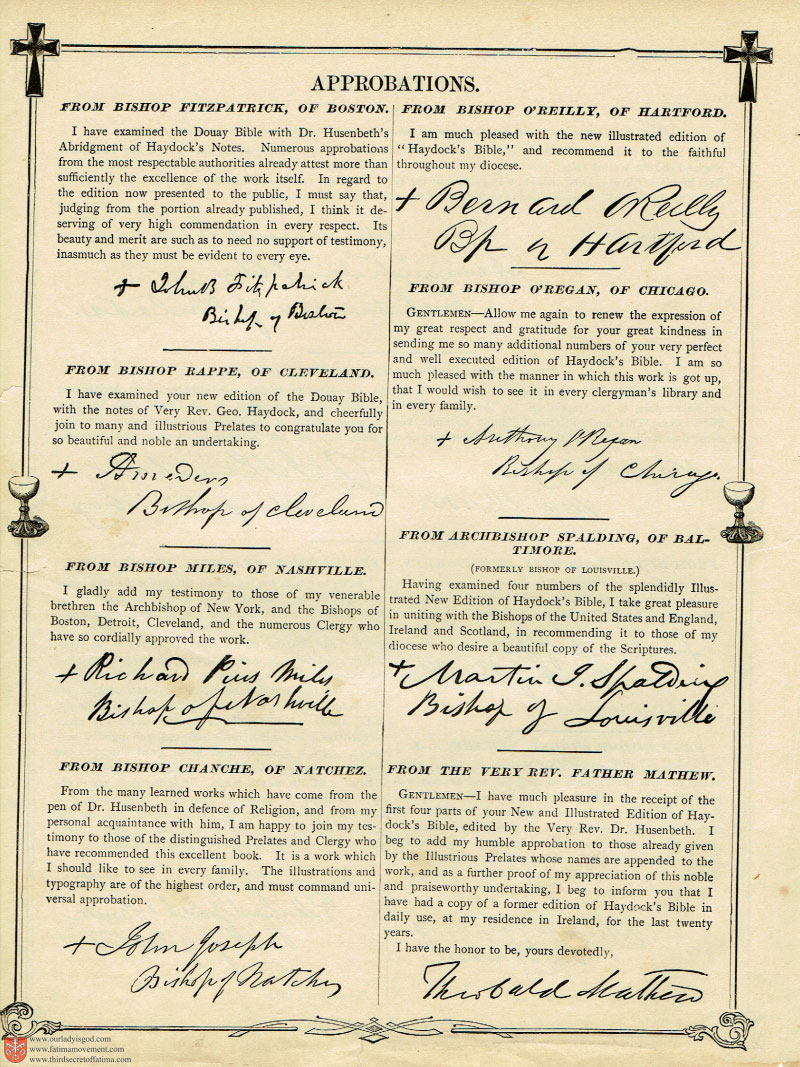 APPROBATIONS.
FROM BISHOP FITZPATRICK, OF BOSTON.
I have examined the Douay Bible with Dr. Husenbeth's
Abridgment of Haydock's Notes. Numerous approbations
from the most respectable authorities already attest more than
sufficiently the excellence of the work itself. In regard to
the edition now presented to the public, I must say that,
judging from the portion already published, I think it de-
serving of very high commendation in every respect. Its
beauty and merit are such as to need no support of testimony,
inasmuch as they must be evident to every eye.
+ John B Fitzpatrick
Bishop of Boston
FROM BISHOP RAPPE, OF CLEVELAND.
I have examined your new edition of the Douay Bible,
with the notes of Very Rev. Geo. Haydock, and cheerfully
join to many and illustrious Prelates to congratulate you for
so beautiful and noble an undertaking.
+ Amedeus
Bishop of Cleveland
FROM BISHOP MILES, OF NASHVILLE.
I gladly add my testimony to those of my venerable
brethren the Archbishop of New York, and the Bishops of
Boston, Detroit, Cleveland, and the numerous Clergy who
have so cordially approved the work.
+ Richard Pius Miles
Bishop of Nashville
FROM BISHOP CHANCHE, OF NATCHEZ.
From the many learned works which have come from the
pen of Dr. Husenbeth in defence of Religion, and from my
personal acquaintance with him, I am happy to join my tes-
timony to those of the distinguished Prelates and Clergy who
have recommended this excellent book. It is a work which
I should like to see in every family. The illustrations and
typography are of the highest order, and must command uni-
versal approbation.
+ John Joseph
Bishop of Natchez
FROM BISHOP O'REILLY, OF HARTFORD.
I am much pleased with the new illustrated edition of
"Haydock's Bible," and recommend it to the faithful
throughout my diocese.
+ Bernard O'Reilly
Bp of Hartford
FROM BISHOP O'REGAN, OF CHICAGO.
GENTLEMEN—Allow me again to renew the expression of
my great respect and gratitude for your great kindness in
sending me so many additional numbers of your very perfect
and well executed edition of Haydock's Bible. I am so
much pleased with the manner in which this work is got up,
that I would wish to see it in every clergyman's library and
in every family.
+ Anthony O'Regan
Bishop of Chicago.
FROM ARCHBISHOP SPALDING, OF BAL-
TIMORE.
(FORMERLY BISHOP OF LOUISVILLE.)
Having examined four numbers of the splendidly Illus-
trated New Edition of Haydock's Bible, I take great pleasure
in uniting with the Bishops of the United States and England,
Ireland and Scotland, in recommending it to those of my
diocese who desire a beautiful copy of the Scriptures.
+ Martin J. Spalding
Bishop of Louisville
FROM THE VERY REV. FATHER MATHEW.
GENTLEMEN—I have much pleasure in the receipt of the
first four parts of your New and Illustrated Edition of Hay-
dock's Bible, edited by the Very Rev. Dr. Husenbeth. I
beg to add my humble approbation to those already given
by the Illustrious Prelates whose names are appended to the
work, and as a further proof of my appreciation of this noble
and praiseworthy undertaking, I beg to inform you that I
have had a copy of a former edition of Haydock's Bible in
daily use, at my residence in Ireland, for the last twenty
years.
I have the honor to be, yours devotedly,
Theobald Mathew
www.ourladyisgod.com
www.fatimamovement.com
www.thirdsecretoffatima.com